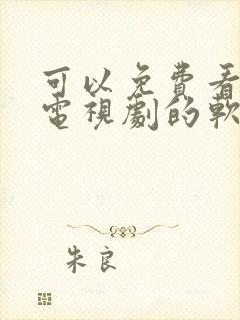 可以免费看
電視劇的軟
朱良